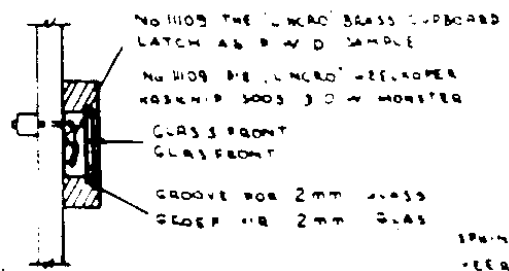 No 1109 THE "UNCRO" BRASS CUPBOARD
LATCH AS P W D SAMPLE
No 1109 DIE "UNCRO"
KASKNIP SOOS MONSTER
GLASS FRONT
GLASFRONT
GROOVE FOR 2 mm GLASS
GROEF VIR 2 mm GLAS